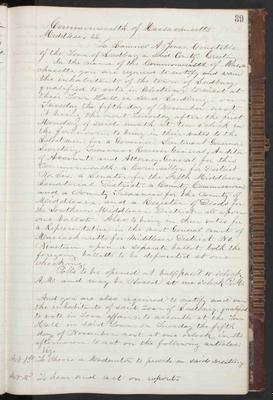 89
Commonwealth of Massachusetts
Middlesex ss.
To Samuel A. Jones Constable
of the Town of Sudbury in said County Greeting
In the name of the Commonwealth of Massa-
chusetts you are required to notify and warn
the inhabitants of the town of Sudbury
qualified to vote in Elections to meet at
the Town Hall in said Sudbury on
Tuesday the fifth day of November next
it being the next Tuesday after the first
Monday of said month at o'clock in
the forenoon to bring in their votes to the
Selectmen for a Governor, Lieutenant Governor
Secretary, Treasurer & Receiver General, Auditor
of Accounts and Attorney General for this
Commonwealth, a Councillor for District
No. a Senator for the Fifth Middlesex
Senatorial District a County Commissioner
and a County Treasurer for the County of
Middlesex and a Register of Deeds for
the Southern Middlesex District all upon
one ballot. Also to bring in their votes for
a Representative in the next General Court of
Massachusetts for Middlesex District No.
upon a separate ballot both the
foregoing ballots to be deposited at one
balloting
Polls to be opened at half past o'clock
A.M. and may be closed at one o'clock P.M.
And you are also required to notify and warn
the inhabitants of said Town of Sudbury qualified
to vote in Town affairs to assemble at the Town
Hall in said Town on Tuesday the fifth
day of November next at one o'clock in the
afternoon to act on the following articles
viz:
Art. 1st. To choose a Moderator to preside in said meeting
Art. 2d. To hear and act on reports